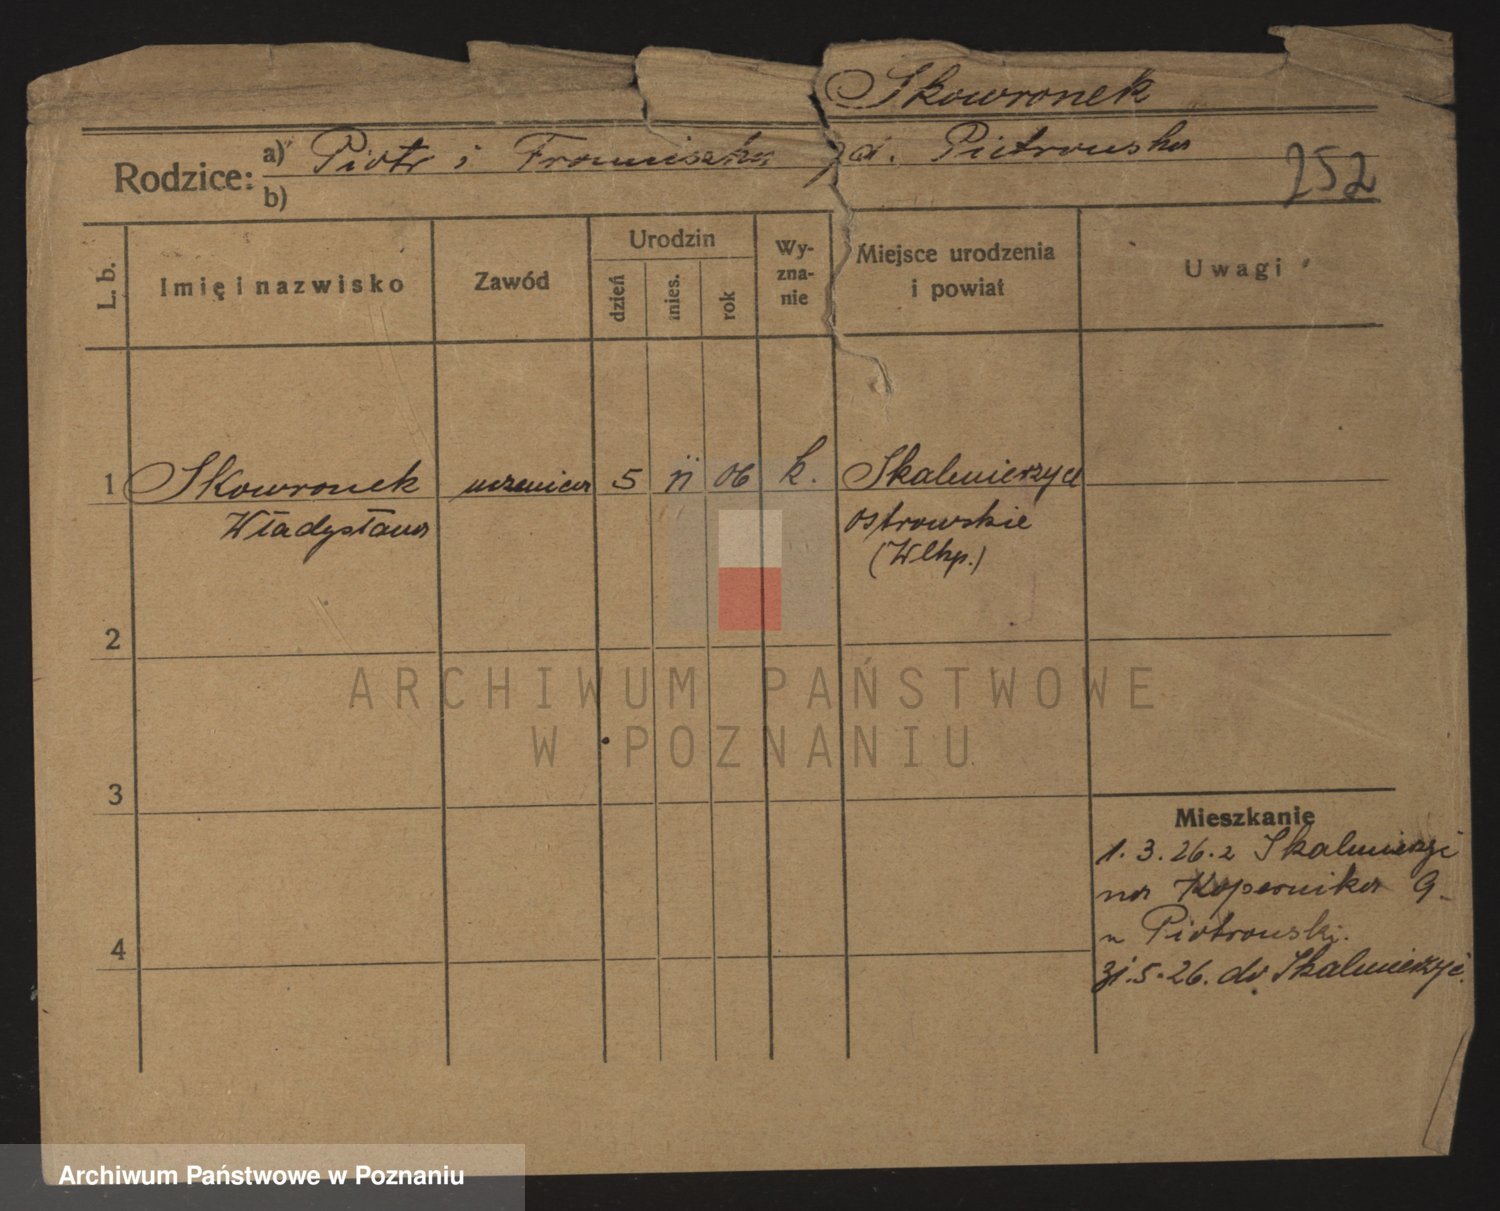 Skowronek
Rodzice: a) Piotr i Franciszka z d. Piotrowska
b)
252
L. b.
Imię i nazwisko
Zawód
Urodzin
dzień
mies.
rok
Wy-
zna-
nie
Miejsce urodzenia
i powiat
Uwagi
1 Skowronek uczenica 5 II 06 k. Skalmierzyce
Władysława ostrowskie
(Wlkp.)
2
3
4
Mieszkanie
1.3.26. z Skalmierzyc
na Kopernika 9
u Piotrowski.
5.26. do Skalmierzyc.
ARCHIWUM PAŃSTWOWE
W POZNANIU
Archiwum Państwowe w Poznaniu